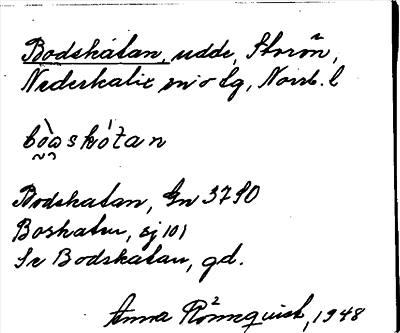 Bodskåtan, udde, Storön,
Nederkalix sn o tg, Norrb. l
bòaskótan
Bodskatan, Gn 3790
Boskatan, sj 101
Sr Bodskatan, gd.
Anna Rönnquist, 1948